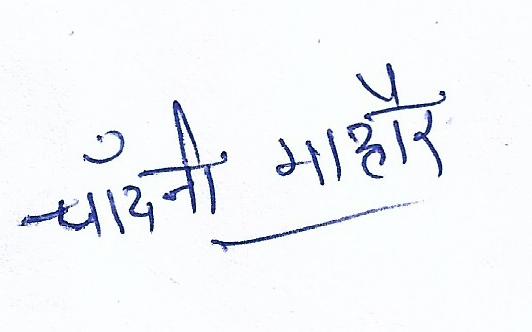 चाँदनी माहौर